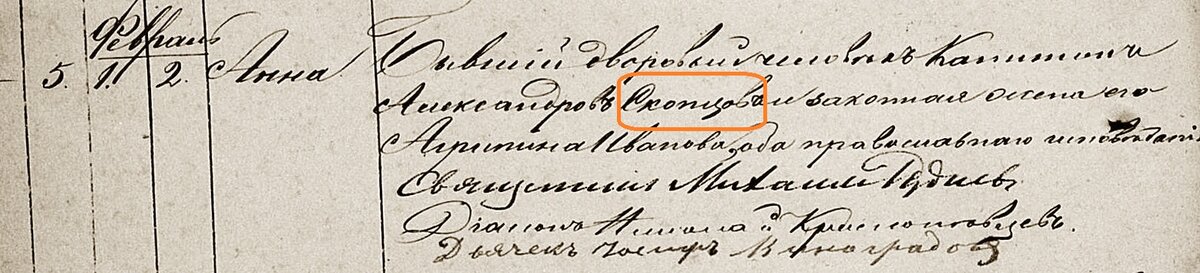 Февраль
5. 1. 2. Анна Бывшій дворовый человѣкъ Капитонъ
Александровъ Скопцовъ и законная жена его
Агрипина Иванова, оба православнаго исповѣданія
Священникъ Михаилъ
Діаконъ Николай
Дьячекъ Іосифъ Виноградовъ